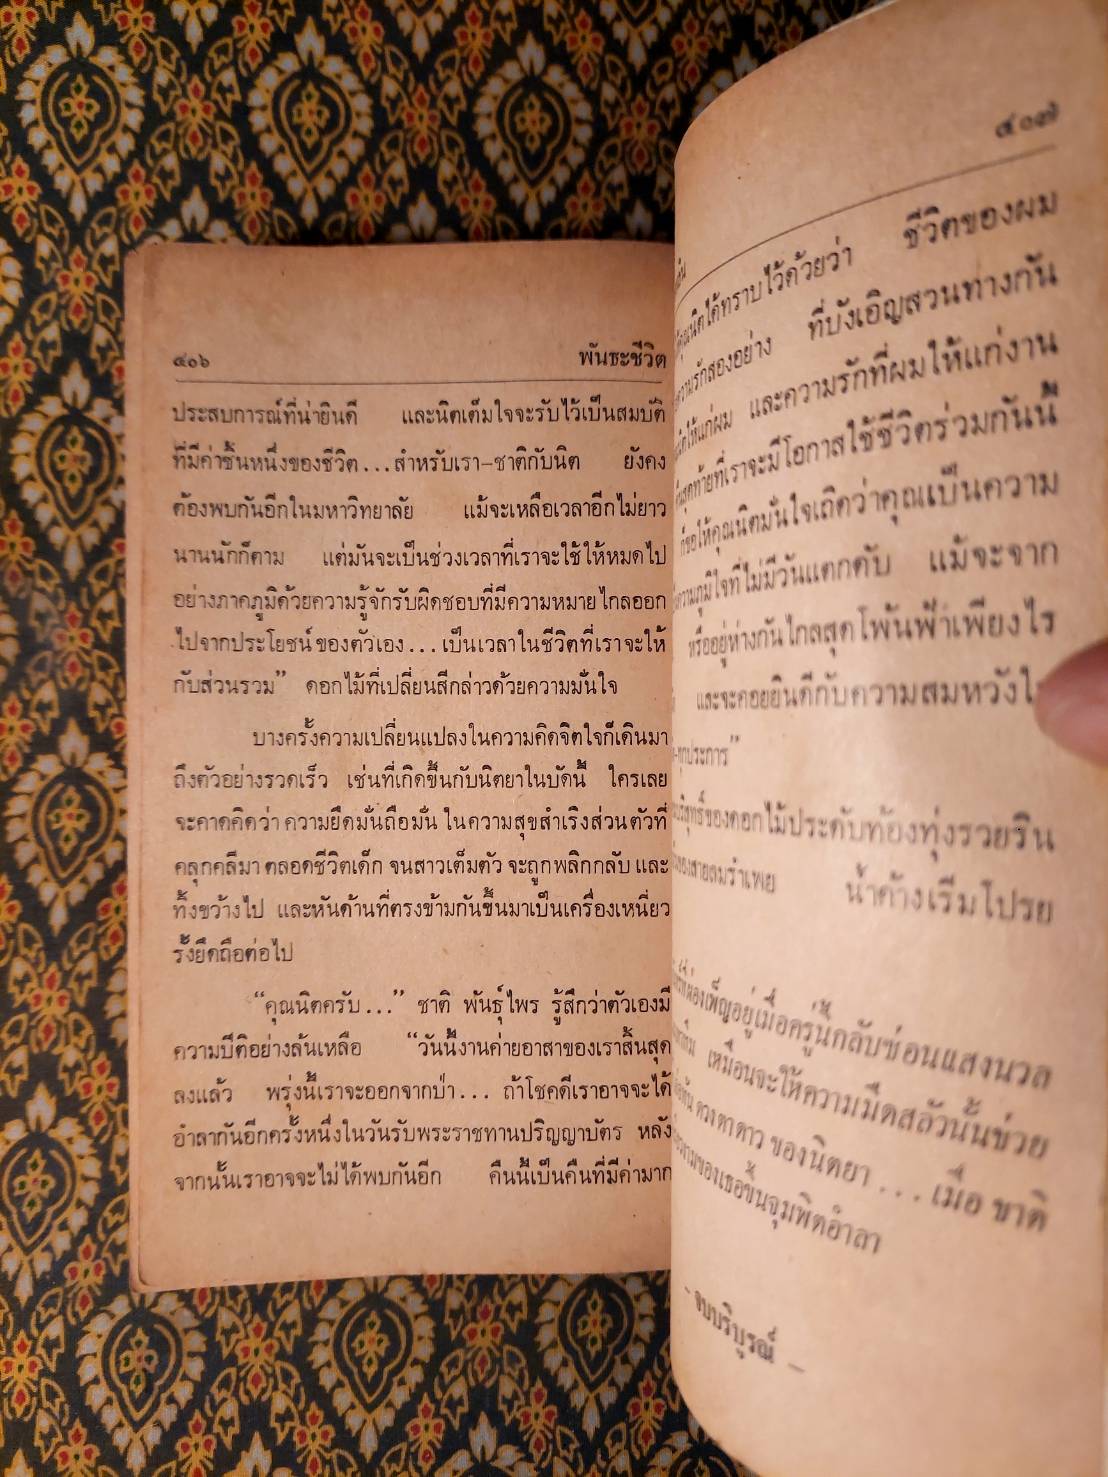 ๔๐๖ พันธะชีวิต
ประสบการณ์ที่น่ายินดี และนิตเต็มใจจะรับไว้เป็นสมบัติ
ที่มีค่าชิ้นหนึ่งของชีวิต...สำหรับเรา-ชาติกับนิต ยังคง
ต้องพบกันอีกในมหาวิทยาลัย แม้จะเหลือเวลาอีกไม่ยาว
นานนักก็ตาม แต่มันจะเป็นช่วงเวลาที่เราจะใช้ให้หมดไป
อย่างภาคภูมิด้วยความรู้จักรับผิดชอบที่มีความหมายไกลออก
ไปจากประโยชน์ของตัวเอง...เป็นเวลาในชีวิตที่เราจะให้
กับส่วนรวม” ดอกไม้ที่เปลี่ยนสีกล่าวด้วยความมั่นใจ
บางครั้งความเปลี่ยนแปลงในความคิดจิตใจก็เดินมา
ถึงตัวอย่างรวดเร็ว เช่นที่เกิดขึ้นกับนิตยาในบัดนี้ ใครเลย
จะคาดคิดว่า ความยึดมั่นถือมั่น ในความสุขสำเริงส่วนตัวที่
คลุกคลีมา ตลอดชีวิตเด็ก จนสาวเต็มตัว จะถูกพลิกกลับ และ
ทิ้งขว้างไป และหันด้านที่ตรงข้ามกันขึ้นมาเป็นเครื่องเหนี่ยว
รั้งยึดถือต่อไป
“คุณนิตครับ...” ชาติ พันธุ์ไพร รู้สึกว่าตัวเองมี
ความปีติอย่างล้นเหลือ “วันนี้งานค่ายอาสาของเราสิ้นสุด
ลงแล้ว พรุ่งนี้เราจะออกจากป่า... ถ้าโชคดีเราอาจจะได้
อำลากันอีกครั้งหนึ่งในวันรับพระราชทานปริญญาบัตร หลัง
จากนั้นเราอาจจะไม่ได้พบกันอีก คืนนี้เป็นคืนที่มีค่ามาก
๔๐๗
ได้ทราบไว้ด้วยว่า ชีวิตของผม
ความรักสองอย่าง ที่บังเอิญสวนทางกัน
ให้แก่ผม และความรักที่ผมให้แก่งาน
สุดท้ายที่เราจะมีโอกาสใช้ชีวิตร่วมกันนี้
ขอให้คุณนิตมั่นใจเถิดว่าคุณเป็นความ
ความภูมิใจที่ไม่มีวันแตกดับ แม้จะจาก
หรืออยู่ห่างกันไกลสุดโพ้นฟ้าเพียงไร
และจะคอยยินดีกับความสมหวัง
ทุกประการ”
ของดอกไม้ประดับท้องทุ่งรวยริน
ของสายลมรำเพย น้ำค้างเริ่มโปรย
ผ่องเพ็ญอยู่เมื่อครู่นี้กลับซ่อนแสงนวล
เหมือนจะให้ความมืดสลัวนั้นช่วย
ดวงตาดาว ของนิตยา ... เมื่อ ชาติ
ของเธอขึ้นจุมพิตอำลา
- จบบริบูรณ์ -